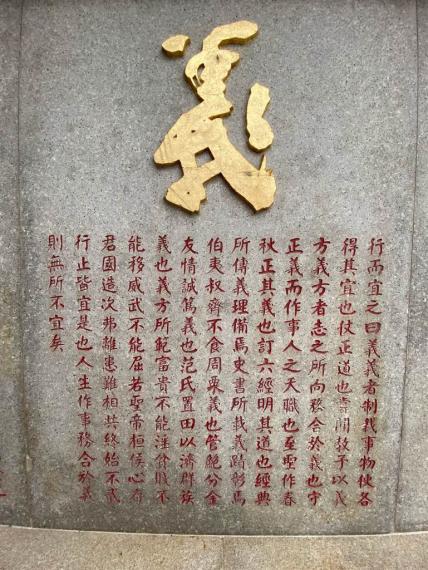 義
行而宜之曰義義者制裁事物使各
得其宜也仗正道也教子以義
方義方者志之所向務合於義也守
正義而作事人之天職也至聖作春
秋正其義也訂六經明其道也經典
所傳義理備焉史書所載義蹟彰焉
伯夷叔齊不食周粟義也管鮑分金
友情誠篤義也范氏置田以濟群族
義也義方所範富貴不能淫貧賤不
能移威武不能屈若聖帝桓侯心存
君國造次弗離患難相共終始不忒
行止皆宜是也人生作事務合於義
則無所不宜矣